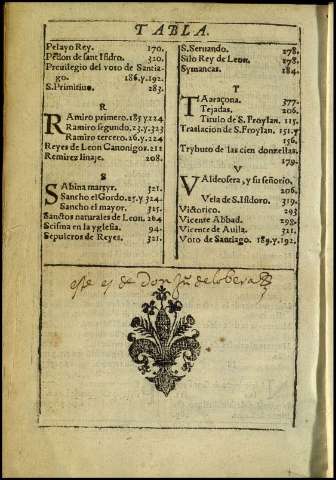 TABLA.
Pelayo Rey. 170.
Pẽdon de sant Isidro. 320.
Preuilegio del voto de Santia-
go. 186.y.192.
S.Primitiuo. 283.
R
RAmiro primero. 185 y 224
Ramiro segundo. 23.y.323
Ramiro tercero. 26.y.224
Reyes de Leon Canonigos. 211
Remirez linaje. 208.
S
SAbina martyr. 321.
Sancho el Gordo. 25.y 324.
Sancho el mayor. 325.
Sanctos naturales de Leon. 264
Scisma en la yglesia. 94.
Sepulcros de Reyes. 321.
S.Seruando. 278.
Silo Rey de Leon. 278.
Symancas. 184.
T
TAaraçona. 377.
Tejadas. 206.
Titulo de S.Froylan. 115.
Traslacion de S.Froylan. 151.y
156.
Trybuto de las cien donzellas.
179.
V
VAldeosera, y su señorio,
206.
Vela de S.Isidoro. 319.
Victorico. 293
Vicente Abbad. 298.
Vicente de Auila. 321.
Voto de Santiago. 189.y.192.
este es de Don Jũ de lobera